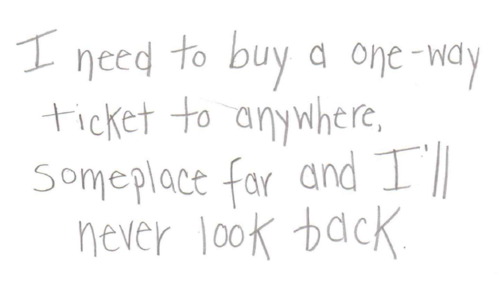 I need to buy a one-way
ticket to anywhere,
someplace far and I'll
never look back.